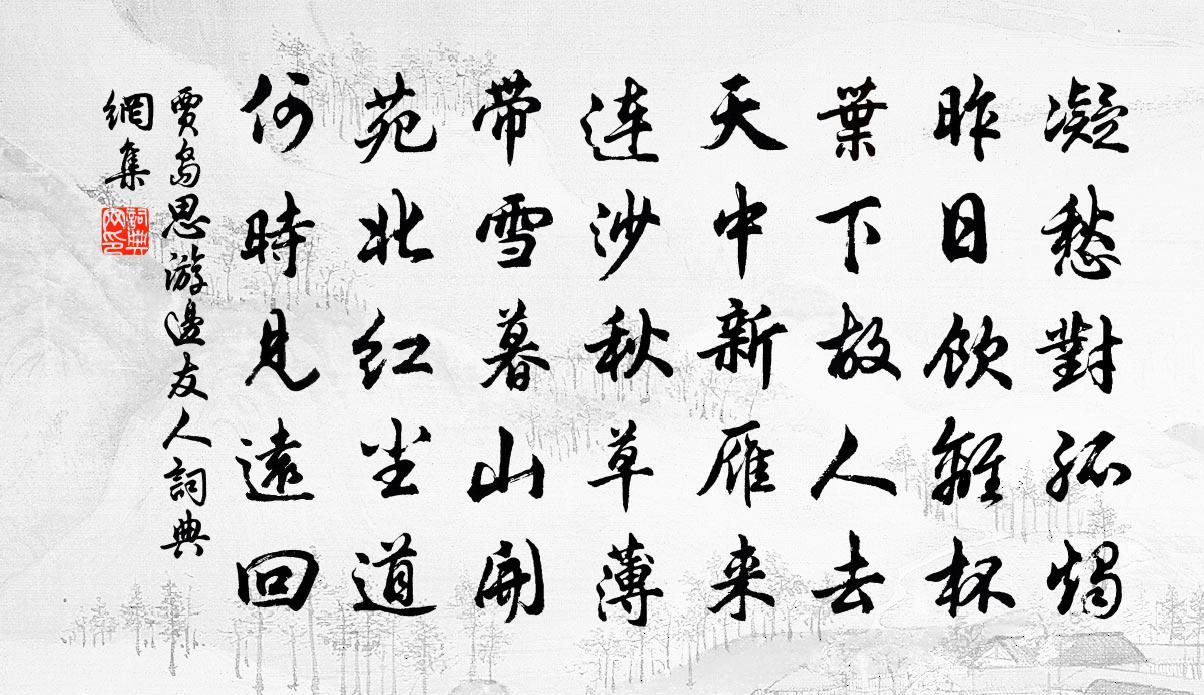 凝愁對孤燭
昨日飲離杯
葉下故人去
天中新雁来
連沙秋草薄
带雪暮山開
苑北红尘道
何時見遠回
賈島思游邊友人詞典
網集
詞典
网印